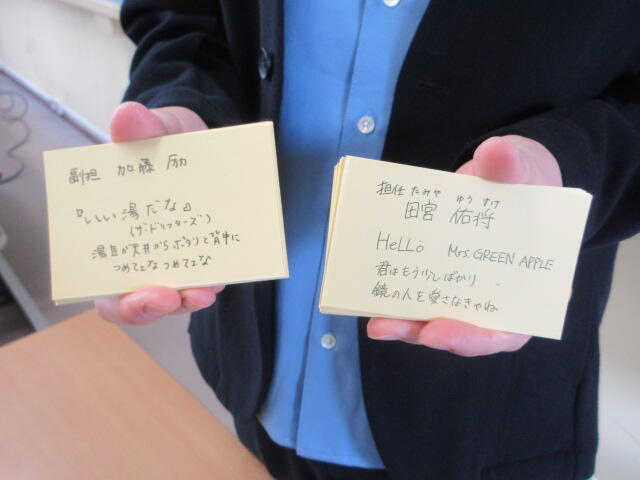 副担 加藤 励
『いい湯だな』
(ザ・ドリフターズ)
湯気が天井からポタリと背中に
つめてェな つめてェな
担任 たみや ゆうすけ
田宮 佑将
HeLLo Mrs. GREEN APPLE
君はもう少しばかり
鏡の人を愛さなきゃね